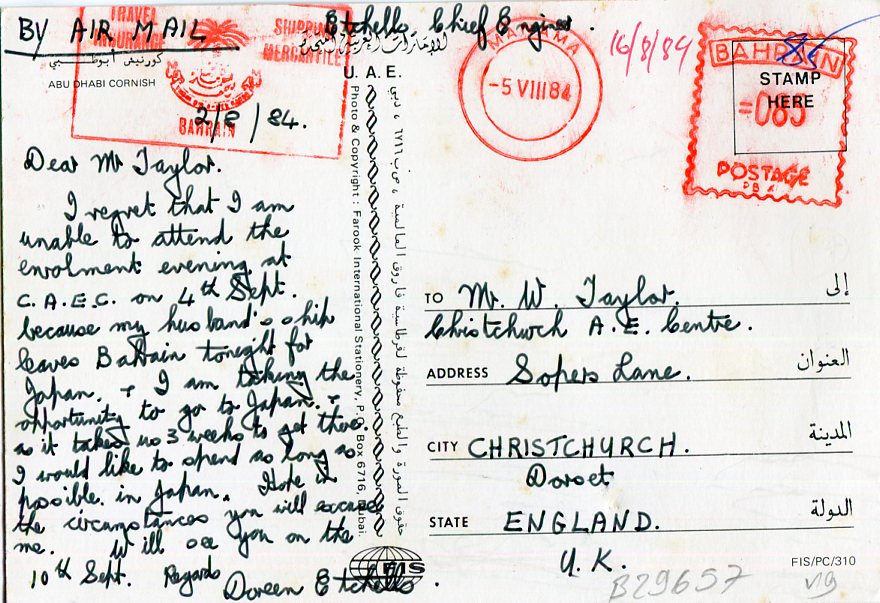 BY AIR MAIL
Etchells Chief Engineer
TRAVEL
INSURANCE
SHIPPING
MERCANTILE
BAHRAIN
كورنيش أبوظبي
ABU DHABI CORNISH
الإمارات العربية المتحدة
U. A. E.
2/8/84.
Dear Mr Taylor.
I regret that I am
unable to attend the
enrolment evening at
C.A.E.C. on 4th Sept.
because my husband's ship
leaves Bahrain tonight for
Japan. & I am taking the
opportunity to go to Japan. &
as it takes us 3 weeks to get there.
I would like to spend as long as
possible in Japan. Hope in
the circumstances you will excuse
me. Will see you on the
10th Sept. Regards
Doreen Etchells.
Photo & Copyright : Farook International Stationery, P.O. Box 6716, Dubai.
حقوق الصورة والطبع محفوظة لقرطاسية فاروق العالمية ، ص.ب ٦٧١٦ ، دبي
FIS
MANAMA
-5 VIII 84
16/8/84
BAHRAIN
STAMP
HERE
=085
POSTAGE
P.B.
TO Mr. W. Taylor. إلى
Christchurch A.E. Centre.
ADDRESS Sopers Lane. العنوان
CITY CHRISTCHURCH. المدينة
Dorset
STATE ENGLAND. الدولة
U.K.
FIS/PC/310
B29657